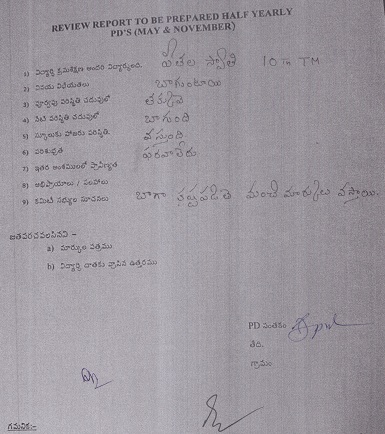 REVIEW REPORT TO BE PREPARED HALF YEARLY
PD'S (MAY & NOVEMBER)
1) విద్యార్థి క్రమశిక్షణ అందరి విద్యార్థులది. స్వాతి 10th TM
2) వినయ విధేయతలు బాగుంటాయి
3) పూర్వపు పరిస్థితి చదువులో
4) నేటి పరిస్థితి చదువులో బాగుంది
5) స్కూలుకు హాజరు పరిస్థితి. వస్తుంది
6) పరిశుభ్రత పరవాలేదు
7) ఇతర అంశములలో ప్రావీణ్యత
8) అభిప్రాయాలు / సలహాలు
9) కమిటీ సభ్యుల సూచనలు బాగా కష్టపడితే మంచి మార్కులు వస్తాయి.
జతపరచవలసినవి -
a) మార్కుల పత్రము
b) విద్యార్థి దాతకు వ్రాసిన ఉత్తరము
PD సంతకం
తేది.
గ్రామం
గమనిక:-